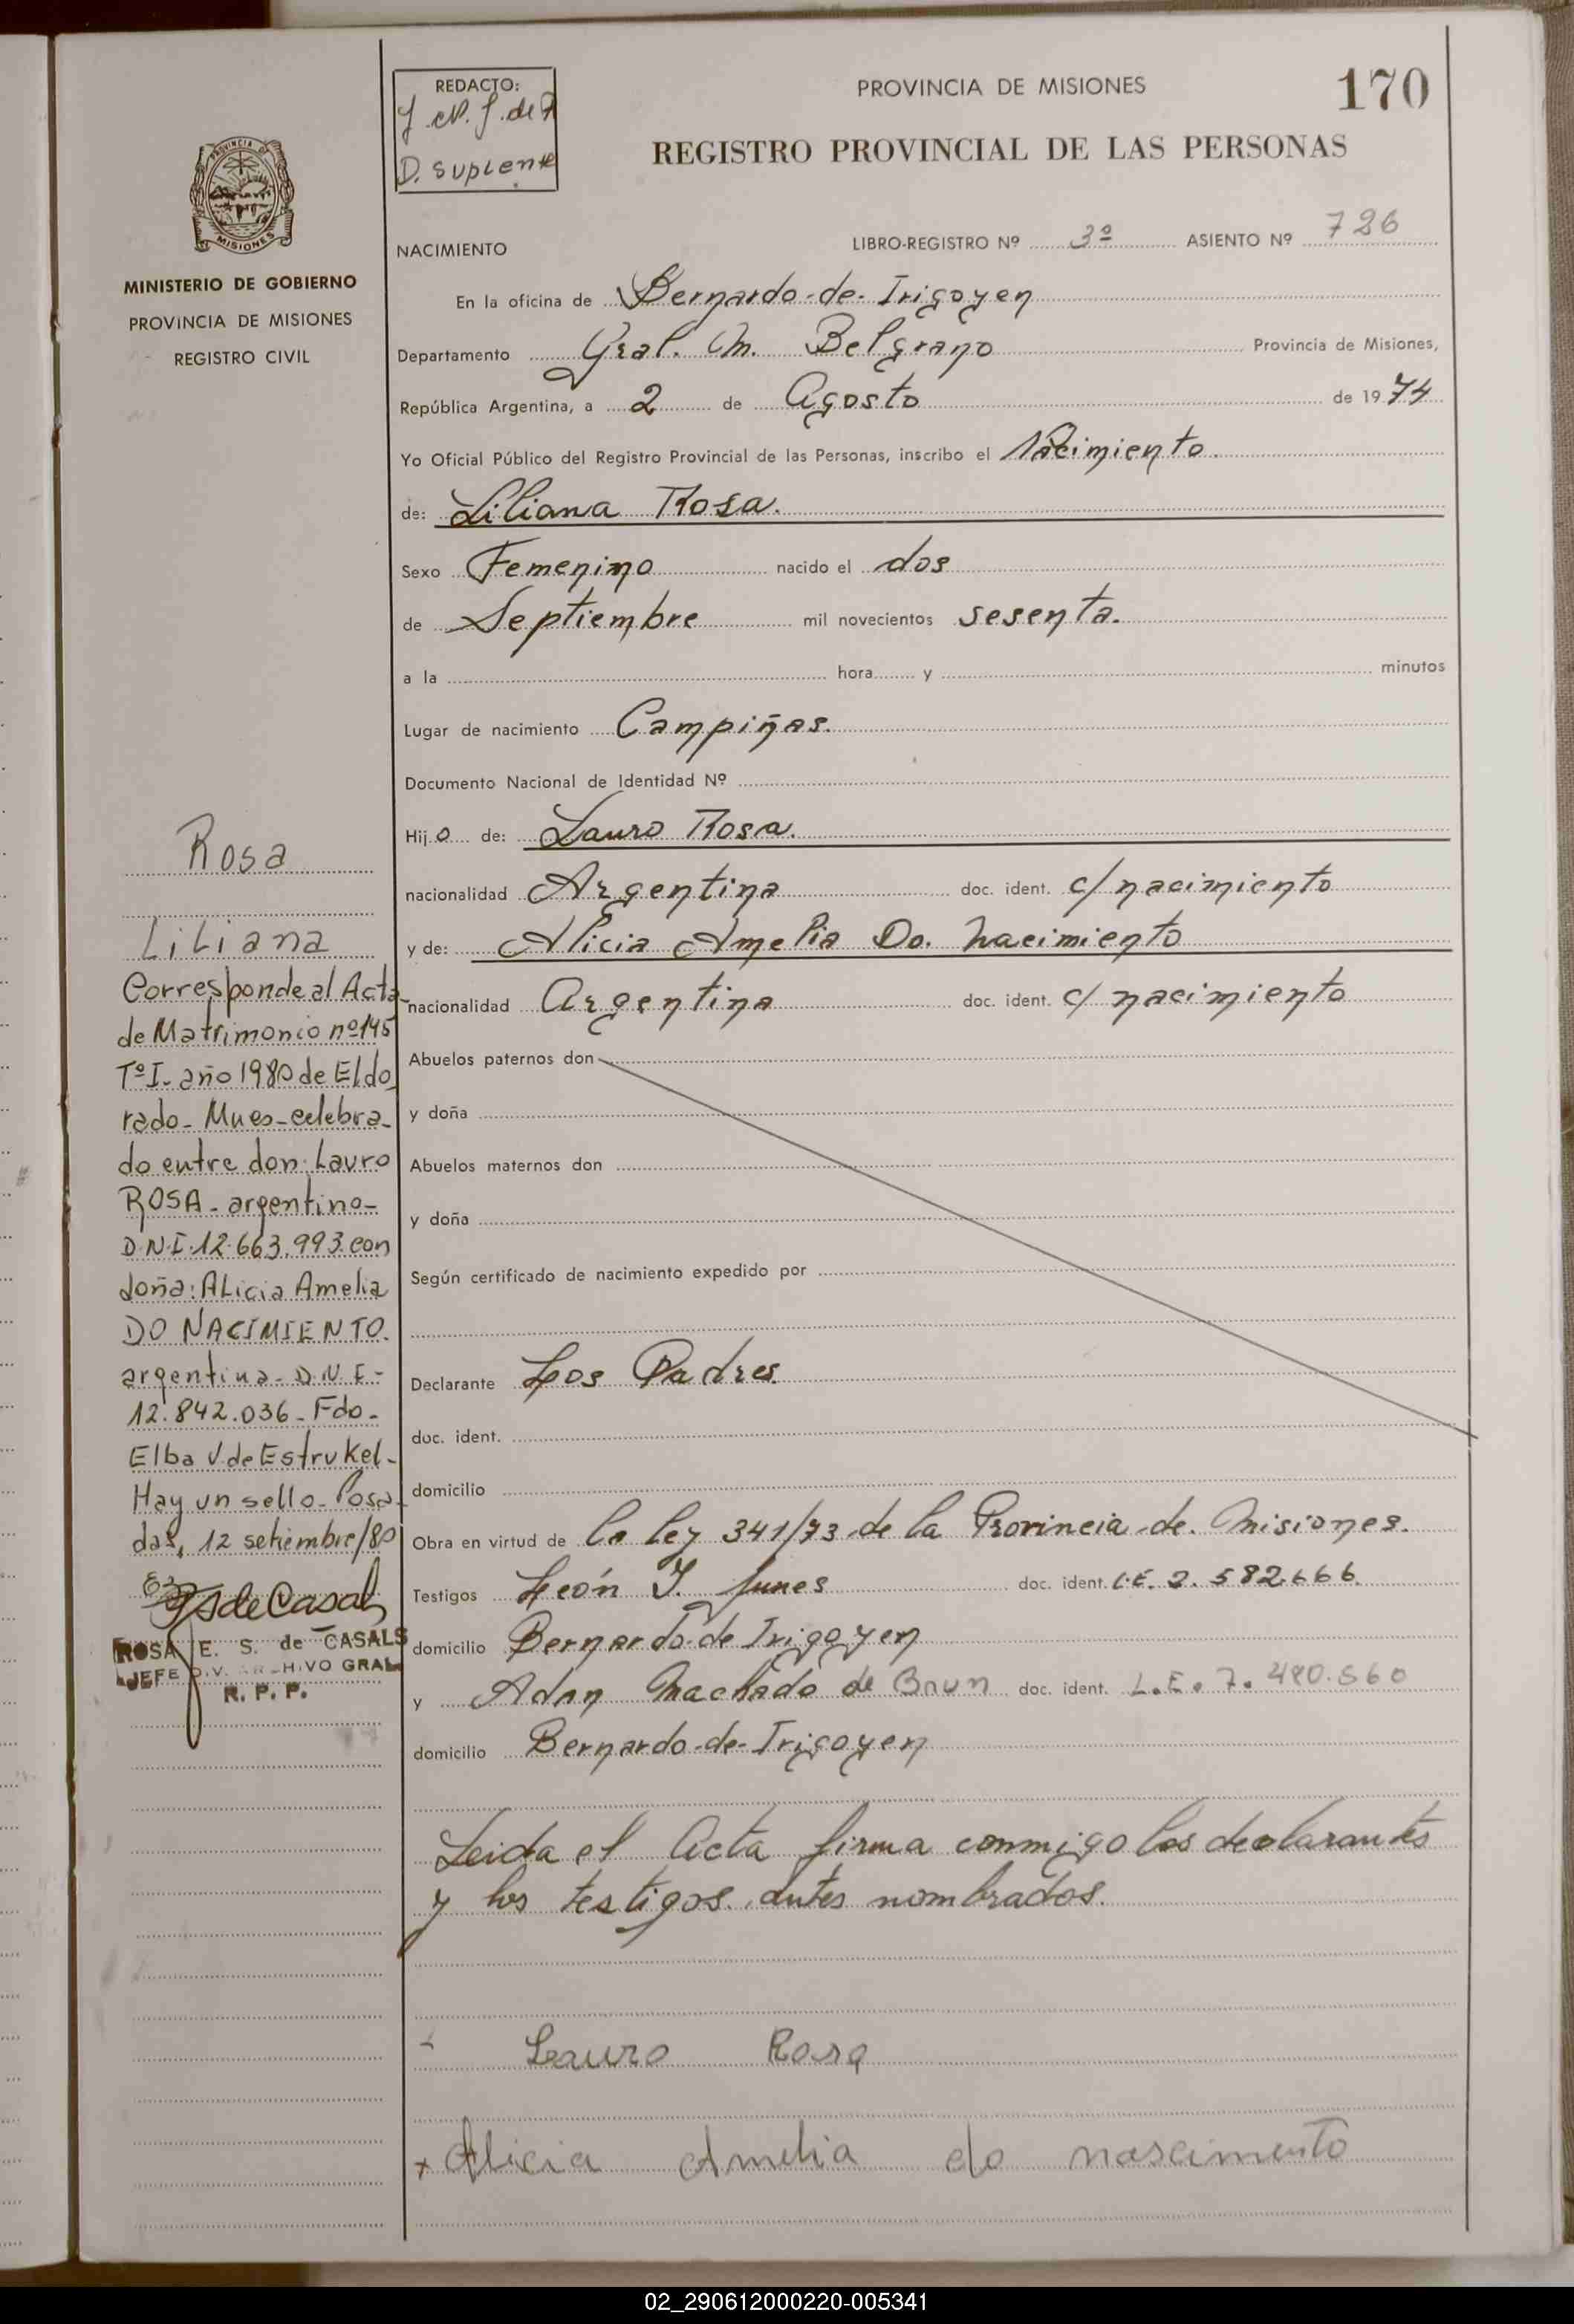 PROVINCIA DE MISIONES
MINISTERIO DE GOBIERNO
PROVINCIA DE MISIONES
REGISTRO CIVIL
Rosa
Liliana
Corresponde al Acta
de Matrimonio nº 145
Tº I - año 1980 de Eldo
rado - Mnes - celebra-
do entre don: Lauro
ROSA - argentino -
D.N.I. 12.663.993 con
doña: ALicia Amelia
DO NACIMIENTO.
argentina - D.N.I -
12.842.036 - Fdo -
Elba V. de Estrukel -
Hay un sello - Posa-
das, 12 setiembre/80
de Casals
ROSA E. S. de CASALS
JEFE DIV. ARCHIVO GRAL
R. P. P.
REDACTO:
D. suplente
PROVINCIA DE MISIONES
170
REGISTRO PROVINCIAL DE LAS PERSONAS
NACIMIENTO
LIBRO-REGISTRO Nº 3º ASIENTO Nº 726
En la oficina de Bernardo-de-Irigoyen
Departamento Gral. M. Belgrano Provincia de Misiones,
República Argentina, a 2 de Agosto de 1974
Yo Oficial Público del Registro Provincial de las Personas, inscribo el Nacimiento.
de: Liliana Rosa.
Sexo Femenino nacido el dos
de Septiembre mil novecientos sesenta.
a la hora y minutos
Lugar de nacimiento Campiñas.
Documento Nacional de Identidad Nº
Hijo de: Lauro Rosa.
nacionalidad Argentina doc. ident. c/ nacimiento
y de: Alicia Amelia Do. Nacimiento
nacionalidad Argentina doc. ident. c/ nacimiento
Abuelos paternos don
y doña
Abuelos maternos don
y doña
Según certificado de nacimiento expedido por
Declarante Los Padres.
doc. ident.
domicilio
Obra en virtud de la Ley 341/73 de la Provincia de Misiones.
Testigos León I. Junes doc. ident. L.E. 2.582.666.
domicilio Bernardo de Irigoyen
y Adan Machado de Brun doc. ident. L.E. 7.480.560
domicilio Bernardo-de-Irigoyen
Leida el Acta firma conmigo los declarantes
y los testigos antes nombrados.
Lauro Rosa
x Alicia Amelia do nascimento
02_290612000220-005341